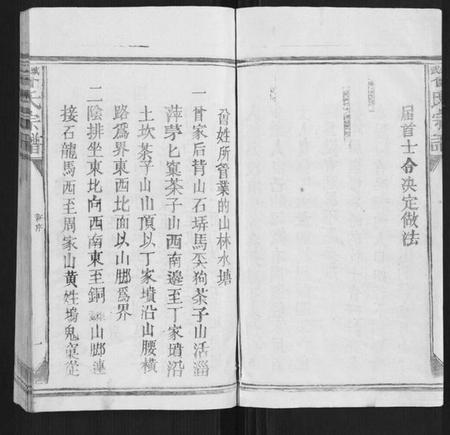 届首士合决定做法
曾姓所管業的山林水塘
一曾家后背山石塝馬
狗茶子山活
萍茅匕窠茶子山西南邊至丁家
沿
土坎茶
山山頂以丁家墳沿山腰橫
路爲界東西北面以山脚爲界
二陰排坐東北向西南東至銅
山脚連
接石龍馬西至周家山黄姓塢鬼窠從
氏宗譜